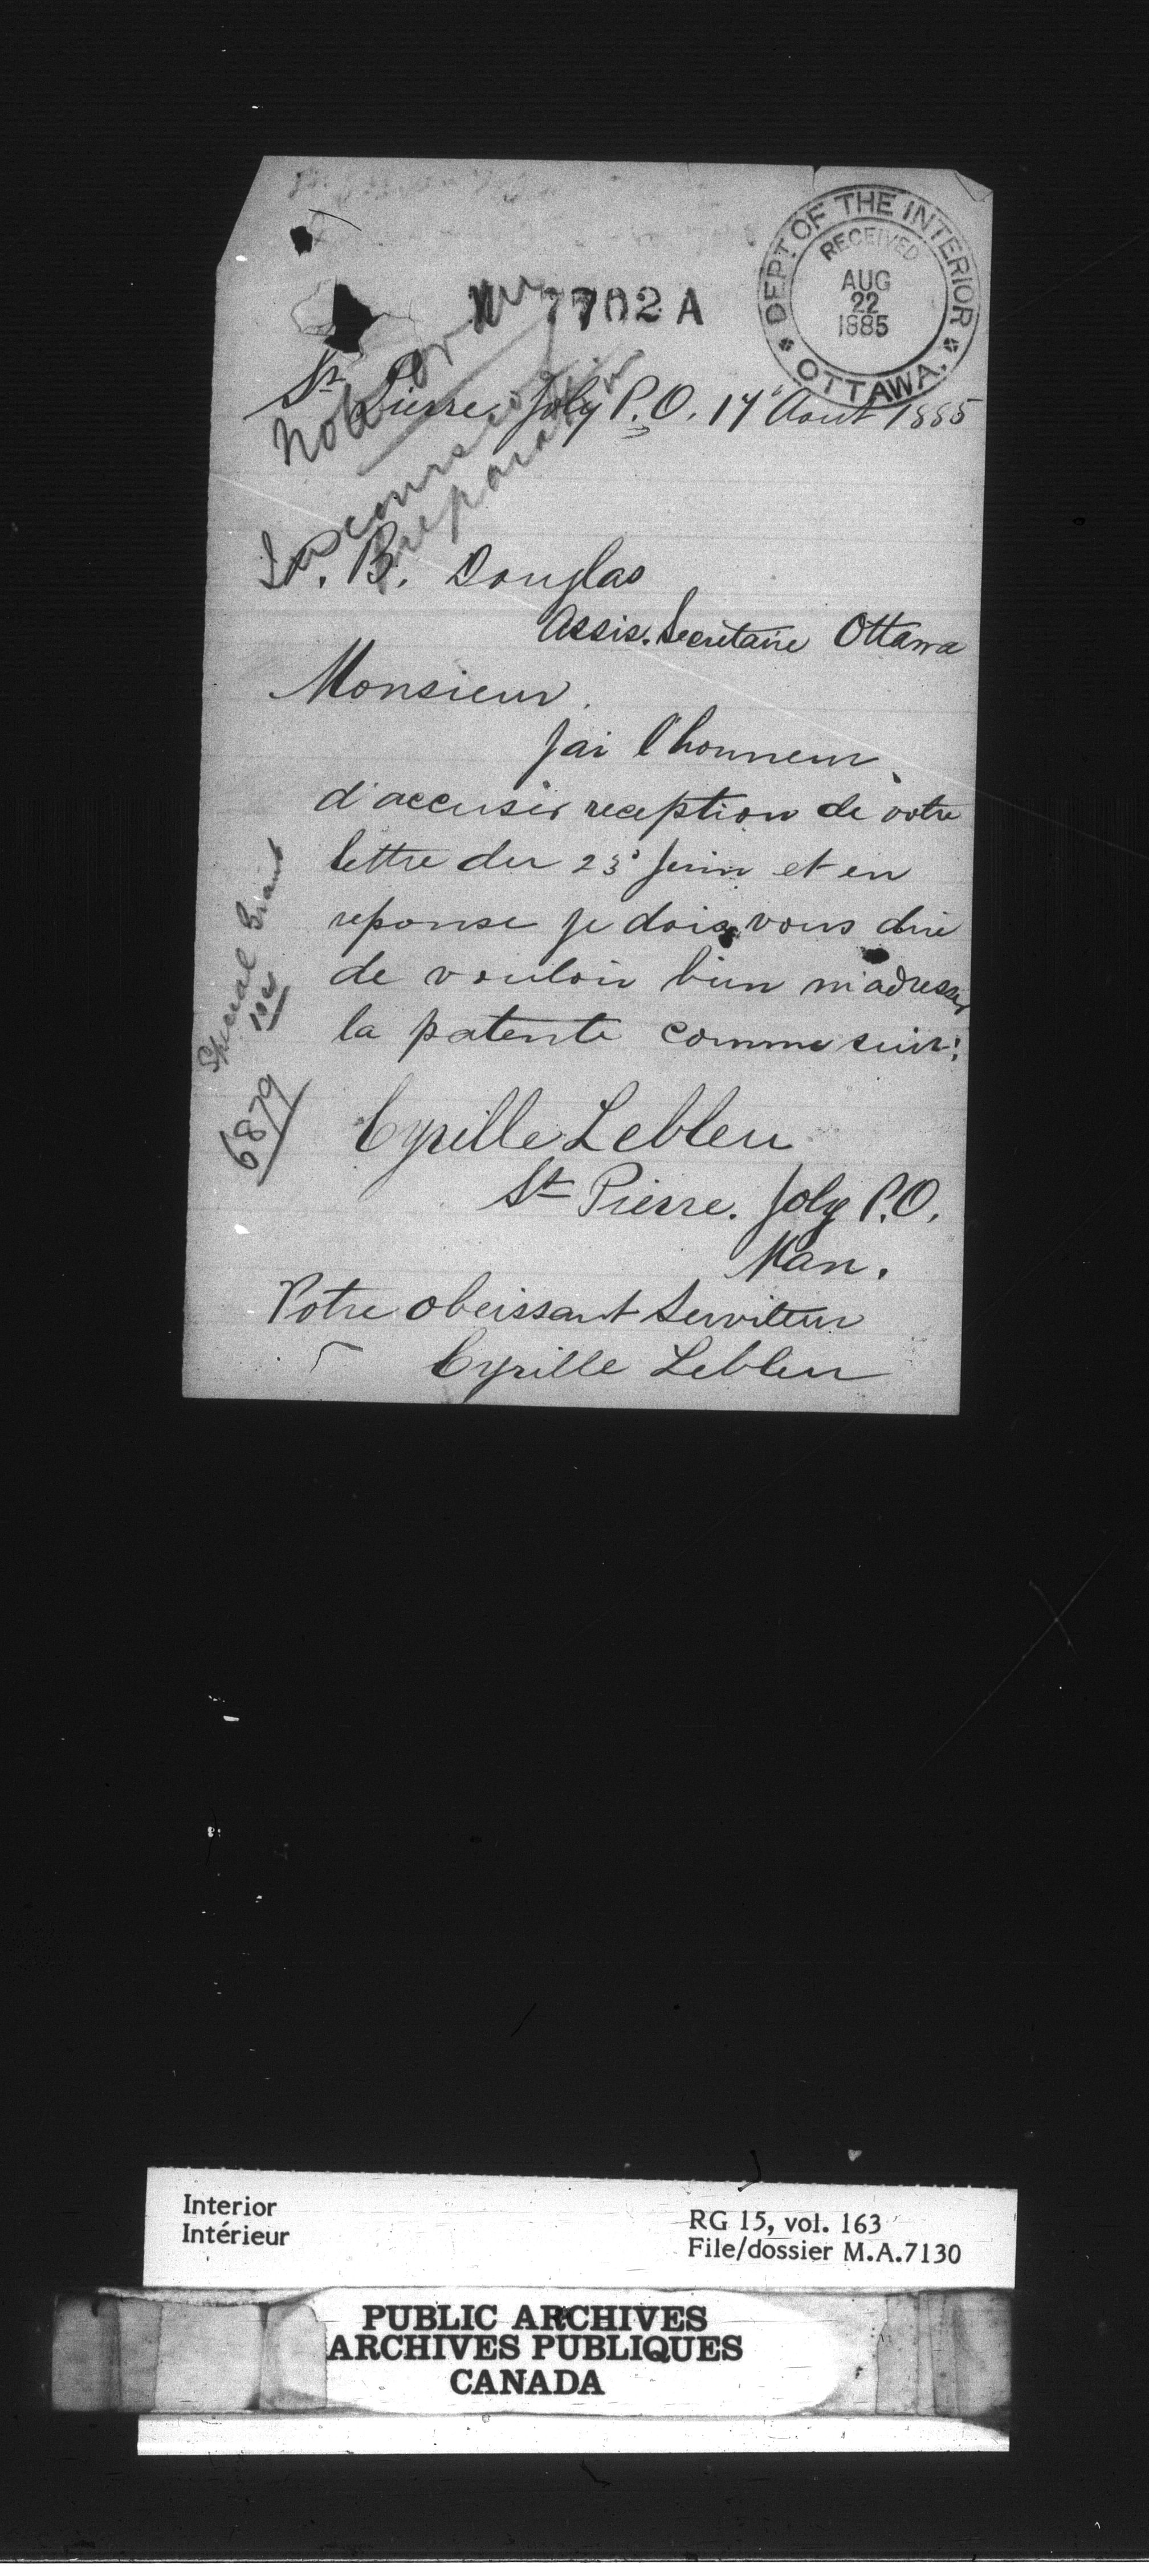 DEPT. OF THE INTERIOR
RECEIVED
AUG
22
1885
OTTAWA.
7702 A
St Pierre. Joly P.O. 17 Aout 1885
in course of
preparation
P. B. Douglas
Assis. Secretaire Ottawa
Monsieur.
Jai l'honneur
d'accuser reception de votre
lettre du 23 Juin et en
reponse je dois vous dire
de vouloir bien m'adresser
la patente comme suit:
Cyrille Lebleu
St Pierre. Joly P.O.
Man.
Votre obeissant Serviteur
Cyrille Lebleu
Special Grant
6879
Interior
Intérieur
RG 15, vol. 163
File/dossier M.A.7130
PUBLIC ARCHIVES
ARCHIVES PUBLIQUES
CANADA